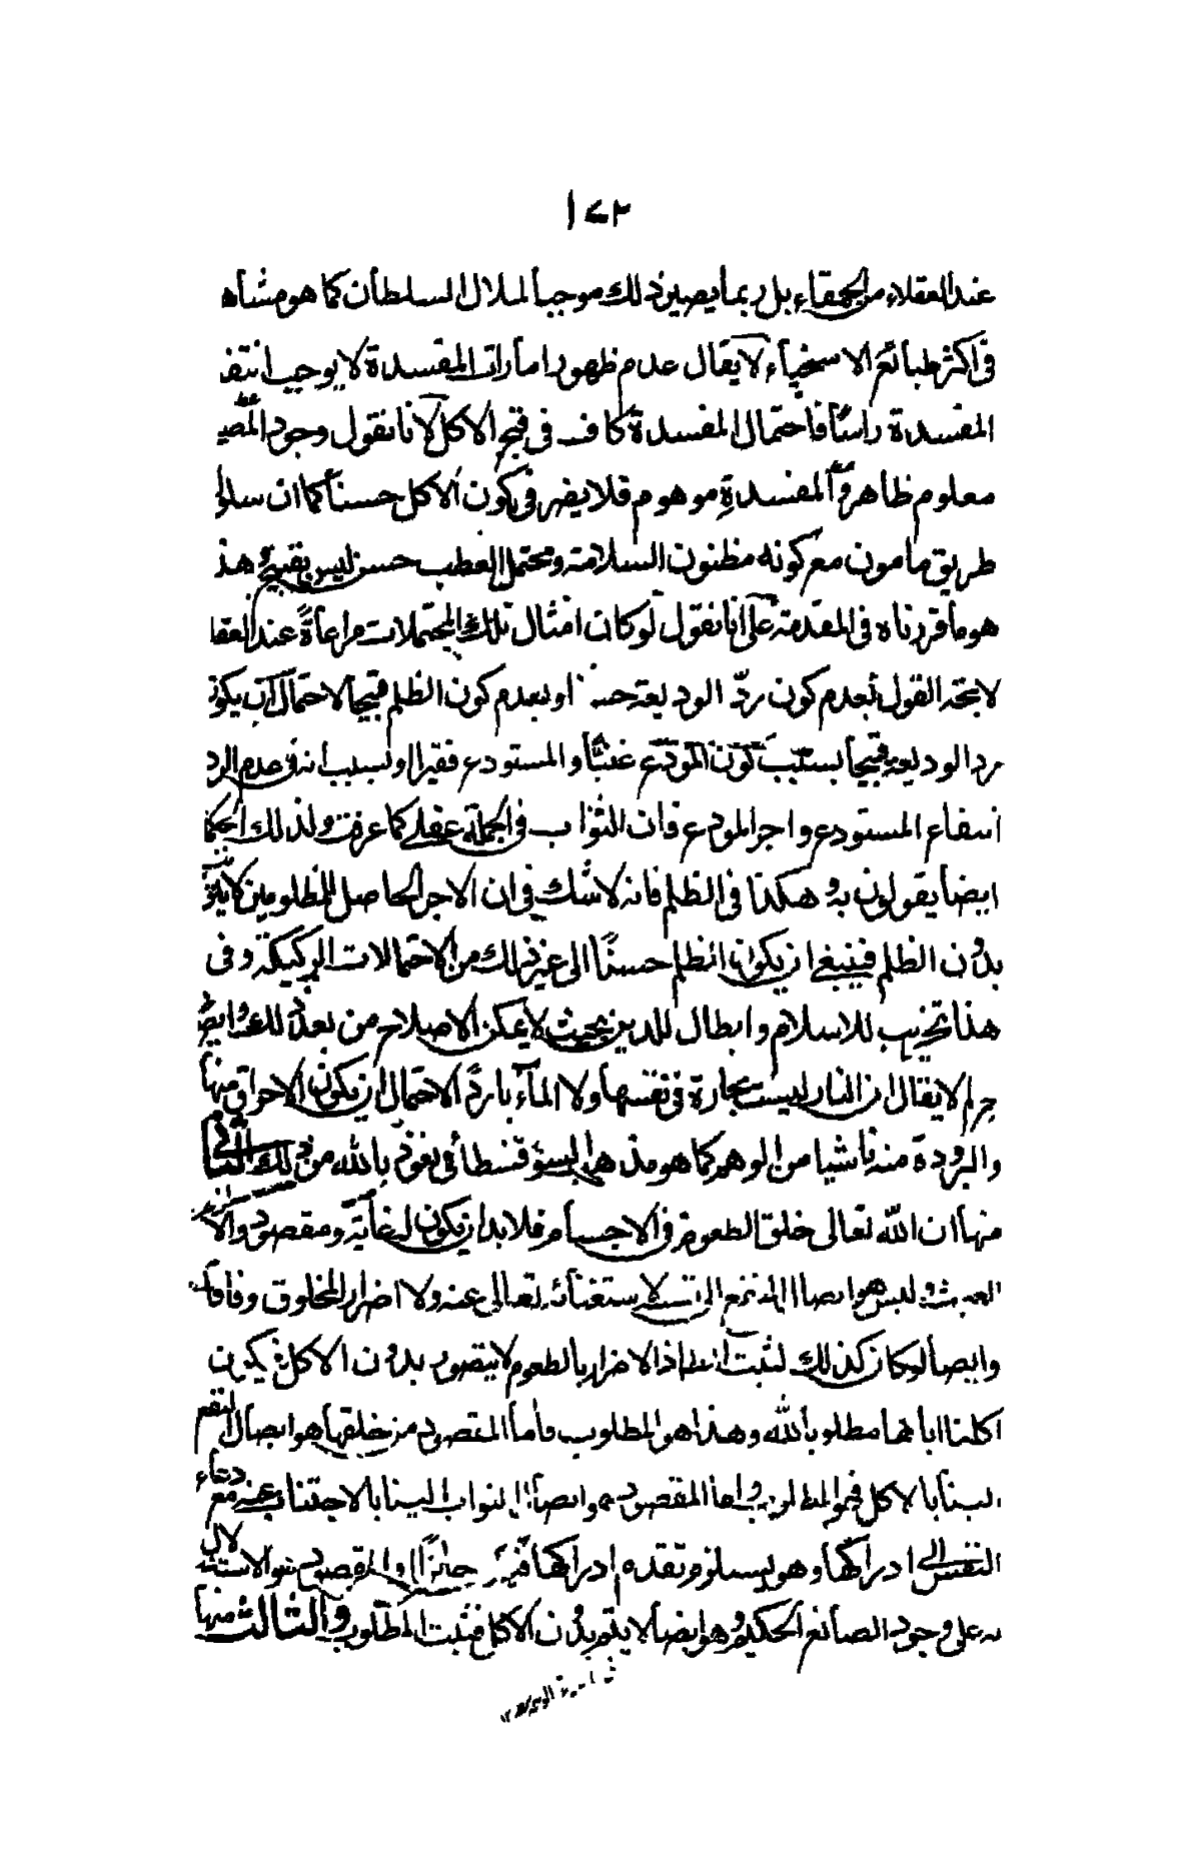 ١٧٢
عند العقلاء من الحمقاء بل ربما يصير ذلك موجبا لملال السلطان كما هو مشاه
في اكثر طبائع الاسخياء لا يقال عدم ظهور امارات المفسدة لا يوجب انتفـ
المفسدة راسًا فاحتمال المفسدة كاف في قبح الاكل لانا نقول وجود المصـ
معلوم ظاهر و المفسدة موهوم فلا يضر في كون الاكل حسنا كما ان سالك
طريق مامون مع كونه مظنون السلامة ومحتمل العطب حسن ليس بقبيح و هذ
هو ما قررناه في المقدمة على انا نقول لو كان امثال تلك المحتملات مراعاةً عند العقلا
لاتجه القول بعدم كون ردّ الوديعة حسنا او بعدم كون الظلم قبيحا لاحتمال ان يكون
رد الوديعة قبيحا بسبب كون المودع غنيًّا و المستودع فقيرا او بسبب انه في عدم الرد
انتفاع المستودع و اجر المودع فان الثواب في الجملة عقلي كما عرفت ولذلك الحكما
ايضا يقولون به و هكذا في الظلم فانه لا شك في ان الاجر الحاصل للمظلومين لا يتـ
بدون الظلم فينبغي ان يكون الظلم حسنًا الى غير ذلك من الاحتمالات الركيكة و في
هذا تخريب للاسلام و ابطال للدين بحيث لا يمكن الاصلاح من بعد ذلك و ايضـ
جرام لا يقال ان النار ليست بحارة في نفسها ولا الماء باردًا لاحتمال ان يكون الاحراق منها
والبرودة منه ناشيا من الوهم كما هو مذهب السوفسطائي نعوذ بالله من ذلك الثاني
منها ان الله تعالى خلق الطعوم في الاجسام فلا بد ان يكون لغاية و مقصود و الا
العبث و ليس هو ايصال النفع اليه لاستغنائه تعالى عنه ولا اضرار المخلوق وفاقا
وايضا لو كان كذلك لثبت ايضا اذ الاضرار بالطعوم لا يتصور بدون الاكل فيكون
اكلنا اياهما مطلوبا لله و هذا هو المطلوب فاما المقصود من خلقها هو ايصال النفع
الينا بالاكل فهو المطلوب و اما المقصود هو ايصال الثواب الينا بالاجتناب عنه مع دعاء
النفس الى ادراكها و هو يستلزم تقدم ادراكها جائزًا او المقصود هو الاستدلال
به على وجود الصانع الحكيم و هو ايضا لا يتم بدون الاكل فثبت المطلوب والثالث منها